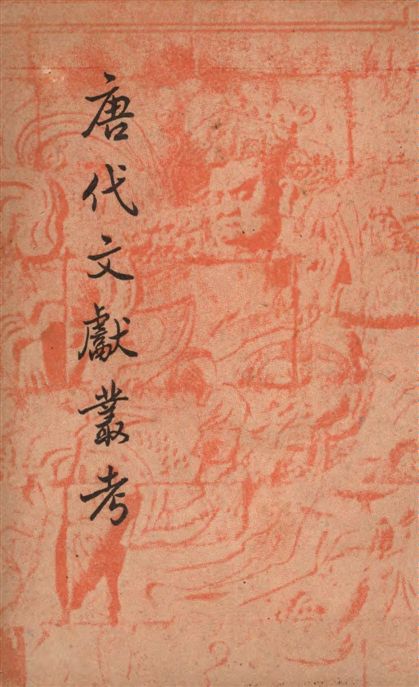 唐代文獻叢考